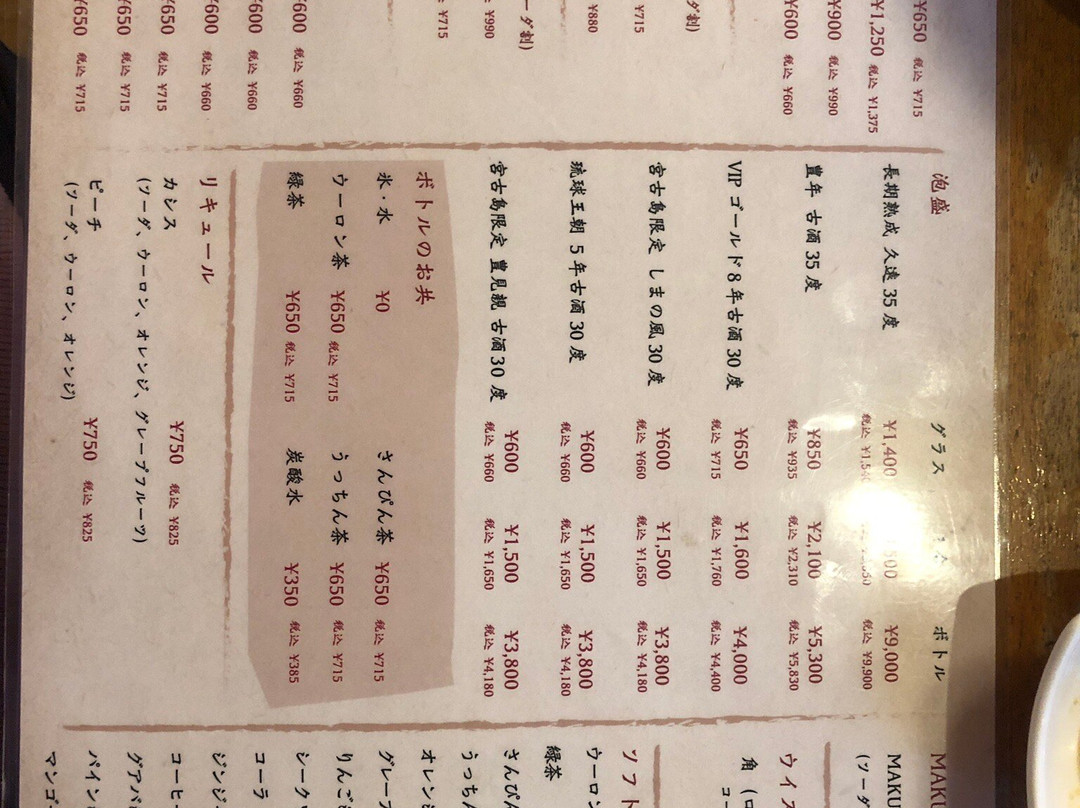 ¥650 税込 ¥715
¥1,250 税込 ¥1,375
¥900 税込 ¥990
¥600 税込 ¥660
ダ割)
¥715
¥880
ーダ割)
¥990
¥715
¥600 税込 ¥660
¥600 税込 ¥660
¥600 税込 ¥660
¥650 税込 ¥715
¥650 税込 ¥715
¥650 税込 ¥715
泡盛 グラス ボトル
長期熟成 久遠 35 度 ¥1,400 ¥9,000
税込 税込 ¥9,900
豊年 古酒 35 度 ¥850 ¥2,100 ¥5,300
税込 ¥935 税込 ¥2,310 税込 ¥5,830
VIP ゴールド 8 年古酒 30 度 ¥650 ¥1,600 ¥4,000
税込 ¥715 税込 ¥1,760 税込 ¥4,400
宮古島限定 しまの風 30 度 ¥600 ¥1,500 ¥3,800
税込 ¥660 税込 ¥1,650 税込 ¥4,180
琉球王朝 5 年古酒 30 度 ¥600 ¥1,500 ¥3,800
税込 ¥660 税込 ¥1,650 税込 ¥4,180
宮古島限定 豊見親 古酒 30 度 ¥600 ¥1,500 ¥3,800
税込 ¥660 税込 ¥1,650 税込 ¥4,180
ボトルのお共
氷・水 ¥0 さんぴん茶 ¥650 税込 ¥715
ウーロン茶 ¥650 税込 ¥715 うっちん茶 ¥650 税込 ¥715
緑茶 ¥650 税込 ¥715 炭酸水 ¥350 税込 ¥385
リキュール
カシス ¥750 税込 ¥825
(ソーダ、ウーロン、オレンジ、グレープフルーツ)
ピーチ ¥750 税込 ¥825
(ソーダ、ウーロン、オレンジ)
MAKU
MAKU
(ソーダ
ウイス
角 (ロ
コー
ソフト
ウーロン
緑茶
さんぴん
うっちん
オレンジ
グレープ
りんご
シーク
コーラ
ジンジ
コーヒー
グアバ
パイン
マンゴー